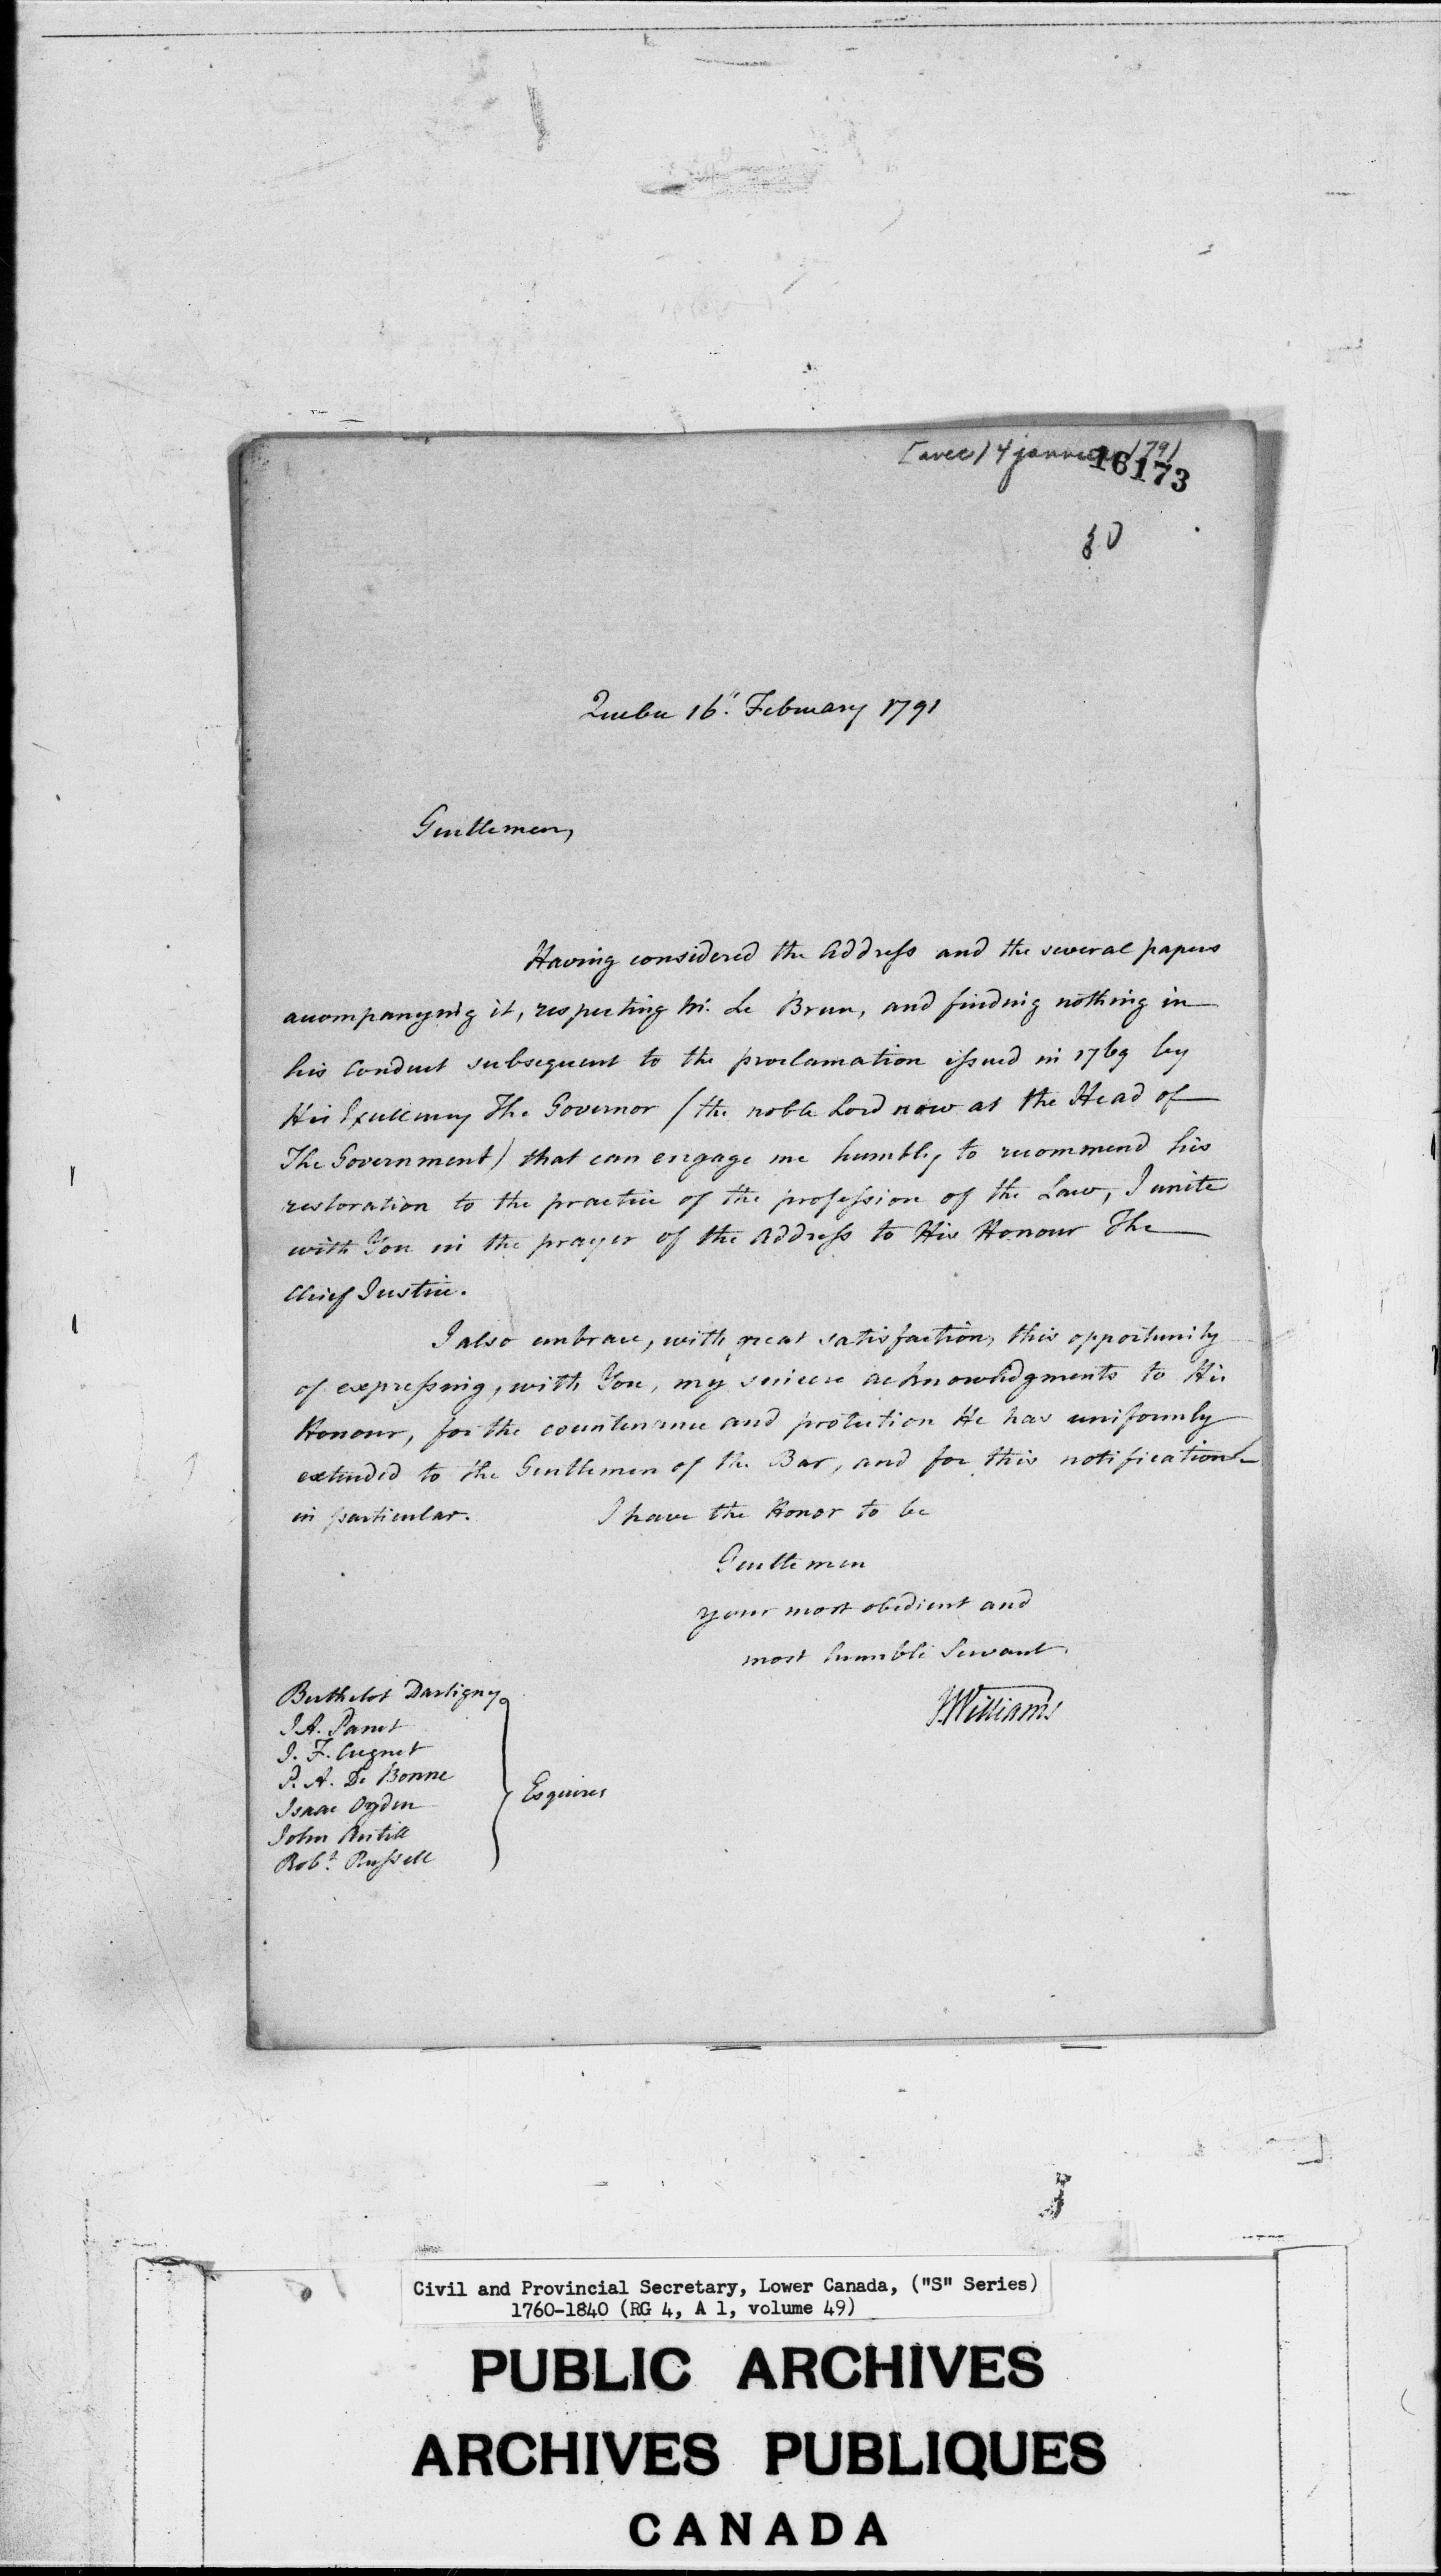 [avec 14 janvier 1791
16173
80
Quebec 16th. February 1791
Gentlemen,
Having considered the Address and the several papers
accompanying it, respecting Mr. Le Brun, and finding nothing in
his Conduct subsequent to the proclamation issued in 1769 by
His Excellency The Governor (the noble Lord now at the Head of
The Government) that can engage me humbly to recommend his
restoration to the practice of the profession of the Law, I unite
with You in the prayer of the Address to His Honour The
Chief Justice.
I also embrace, with great satisfaction, this opportunity
of expressing, with You, my sincere acknowledgments to His
Honour, for the countenance and protection He has uniformly
extended to the Gentlemen of the Bar, and for this notification
in particular. I have the Honor to be
Gentlemen
your most obedient and
most humble Servant
J. Williams
Berthelot Dartigny
J. A. Panet
J. F. Cugnet
P. A. De Bonne
Isaac Ogden
John Antill
Robt. Russell
Esquires
Civil and Provincial Secretary, Lower Canada, ("S" Series)
1760-1840 (RG 4, A 1, volume 49)
PUBLIC ARCHIVES
ARCHIVES PUBLIQUES
CANADA